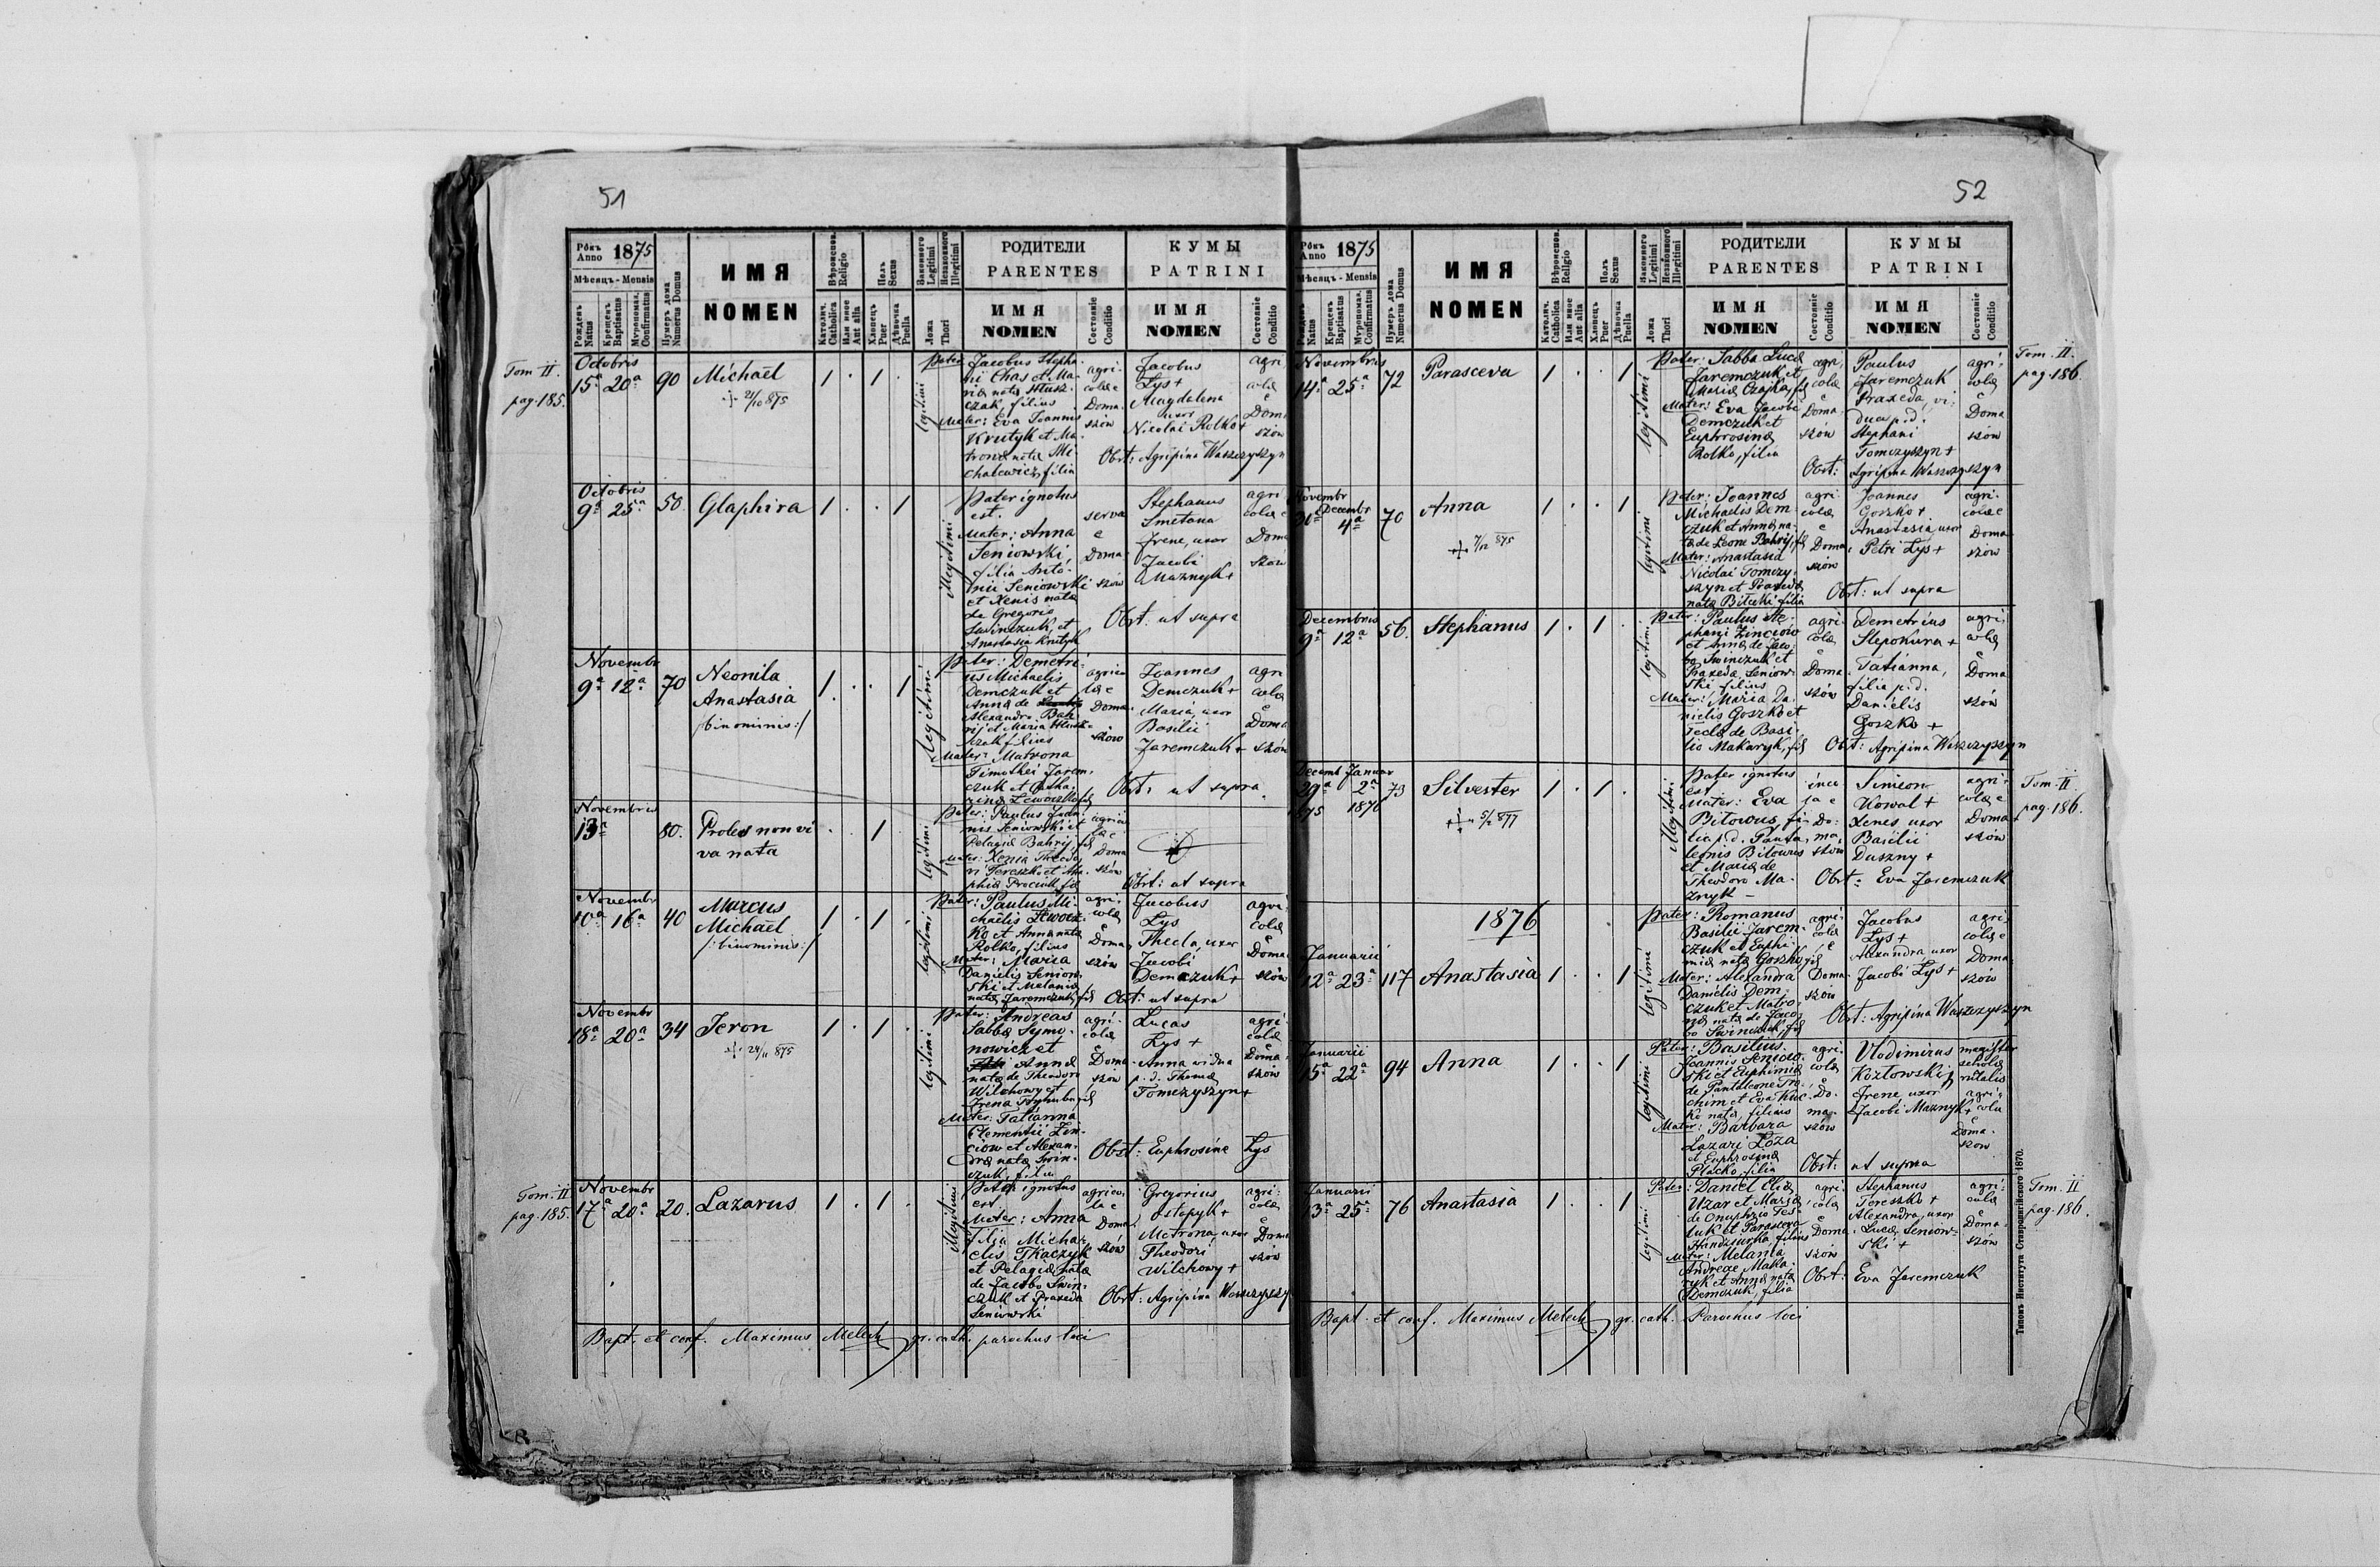 51
Рôкъ Anno 1875
Мѣсяцъ - Mensis
Рожденъ Natus
Крещенъ Baptisatus
Мѵропомаз. Confirmatus
Нумеръ дома Numerus Domus
ИМЯ
NOMEN
Вѣроиспов. Religio
Католич. Catholica
Или иное Aut alia
Полъ Sexus
Хлопецъ Puer
Дѣвочка Puella
Законного Legitimi
Незаконного Illegitimi
Ложа Thori
РОДИТЕЛИ
PARENTES
ИМЯ
NOMEN
Состояніе Conditio
КУМЫ
PATRINI
ИМЯ
NOMEN
Состояніе Conditio
Tom. II.
pag. 185.
Octobris
15ª 20ª 90 Michaël 1 . 1 .
+ 21/10 875
legitimi
Pater: Jacobus Stepha-
nii Chas et Ma-
ria nata Husz-
czak, filius
Mater: Eva Joannis
Krutyk et Ma-
trona nata Mi-
chalewicz, filia
agri-
colae
Doma-
szów
Jacobus
Lys +
Magdalena
uxor
Nicolai Rolko +
agri
colae
Doma
szów
Obst: Agripina Waszczyszyn
Octobris
9ª 25ª 50 Glaphira 1 . . 1
illegitimi
Pater ignotus
est.
Mater: Anna
Seniowski,
filia Anto-
nii Seniowski
et Xenis nata
de Gregorio
Swinczuk, et
Anastasia Krutyk
serva
e
Doma-
szów
Stephanus
Smetana
Irene, uxor
Jacobi
Maznyk +
agri
colae e
Doma
szów
Obst. ut supra
Novembr
9ª 12ª 70 Neonila
Anastasia
/:binominis:/
1 . . 1
legitimi
Pater: Demetri-
us Michaelis
Demczuk et
Anna de
Alexandro Bah-
rij et Maria Husz-
czak filius
Mater: Matrona
Timothei Jarem-
czuk et Catha-
rina Lewoczko fil
agrico
lae
Doma-
szów
Joannes
Demczuk +
Maria, uxor
Basilii
Jaremczuk +
agri
colae
Doma
szów
Obst: ut supra.
Novembris
13ª 80. Proles non vi
va nata
. . 1
legitimi
Pater: Paulus Joan-
nis Seniowski et
Pelagia Bahrij, fil
Mater: Xenia Theodo-
ri Tereszko et Ma-
phia Prociuk fil
agrico
lae
Doma
szów
Obst: ut supra
Novembr
10ª 16ª 40 Marcus
Michaël
/:binominis:/
1 . 1 .
legitimi
Pater: Paulus Mi-
chaëlis Lewocz-
ko et Anna nata
Rolko, filius
Mater: Maria
Danielis Seniow-
ski et Melania
nata Jaremczuk, fil
agri-
colae
e
Doma
szów
Jacobus
Lys
Thecla, uxor
Jacobi
Demczuk +
agri
colae
e
Doma
szów
Obst: ut supra
Novembr
18ª 20ª 34 Jeron 1 . 1 .
+ 24/11 875
legitimi
Pater: Andreas
Sabba Symo-
nowicz et
Anna
nata de Theodoro
Wilchowy et
Irena Hrymbu fil
Mater: Tatianna
Clementii Zin-
ciow et Alexan-
dra nata Swin-
czuk, filia
agri-
colae
e
Doma
szów
Lucas
Lys +
Anna vidua
p.d. Thoma
Tomczyszyn +
agri
colae
e
Doma-
szów
Obst: Euphrosine Lys
Tom. II
pag. 185.
Novembr
17ª 20ª 20. Lazarus 1 . 1 .
illegitimi
Pater ignotus
est.
Mater: Anna
filia Micha-
elis Tkaczyk
et Pelagia nata
de Jacobo Swin-
czuk et Praxeda
Seniowski
agrico-
lae
Doma-
szów
Gregorius
Ostapyk +
Matrona, uxor
Theodori
Wilchowy +
agri-
colae
e
Doma
szów
Obst: Agripina Waszczyszyn
Bapt. et conf. Maximus Melech gr. cath. parochus loci
52
Рôкъ Anno 1875
Мѣсяцъ - Mensis
Рожденъ Natus
Крещенъ Baptisatus
Мѵропомаз. Confirmatus
Нумеръ дома Numerus Domus
ИМЯ
NOMEN
Вѣроиспов. Religio
Католич. Catholica
Или иное Aut alia
Полъ Sexus
Хлопецъ Puer
Дѣвочка Puella
Законного Legitimi
Незаконного Illegitimi
Ложа Thori
РОДИТЕЛИ
PARENTES
ИМЯ
NOMEN
Состояніе Conditio
КУМЫ
PATRINI
ИМЯ
NOMEN
Состояніе Conditio
Tom. II.
pag. 186.
Novembris
14ª 25ª 72 Parasceva 1 . . 1
legitimi
Pater: Sabba Luca
Jaremczuk et
Maria Czajka, fil
Mater: Eva Jacobi
Demczuk et
Euphrosina
Rolko, filia
agri-
colae
e
Doma-
szów
Paulus
Jaremczuk
Praxeda, vi-
dua p.d.
Stephani
Tomczyszyn +
agri-
colae
e
Doma
szów
Obst: Agripina Waszczyszyn
Novembr Decembr
30ª 4ª 70 Anna 1 . . 1
+ 7/12 875
legitimi
Pater: Joannes
Michaelis Dem-
czuk et Anna na-
ta de Leone Bahrij, fil
Mater: Anastasia
Nicolai Tomczy-
szyn et Praxeda
nata Bilecki filia
agri-
colae
e
Doma-
szów
Joannes
Goszko +
Anastasia uxor
Petri Lys +
agri-
colae
Doma-
szów
Obst: ut supra
Decembris
9ª 12ª 56. Stephanus 1 . 1 .
legitimi
Pater: Paulus Ste-
phani Zinciow
et Anna de Jaco-
bo Swinczuk et
Praxeda Seniow-
ski filius
Mater: Maria Da-
nielis Goszko et
Tecla de Basi-
lio Makaryk, fil
agri-
colae
e
Doma-
szów
Demetrius
Slepokura +
Tatianna,
filia p.d.
Danielis
Goszko +
agri-
colae
e
Doma
szów
Obst: Agripina Waszczyszyn
Decemb Januar
29ª 2ª 73 Silvester 1 . 1 .
875 1876
+ 5/2 877
illegitimi
Pater ignotus
est
Mater: Eva
Bitowus fi-
lia p.d. Panta-
leonis Bitowus
et Maria de
Theodoro Ma-
znyk –
Do-
ma-
szów
Simeon
Kowal +
Xenes uxor
Basilii
Duszny +
agri-
colae e
Doma
szów
Obst: Eva Jaremczuk
Tom. II
pag. 186.
1876
Januarii
12ª 23ª 117 Anastasia 1 . . 1
legitimi
Pater: Romanus
Basilii Jarem-
czuk et Euphi-
mia nata Goszko, fil
Mater: Alexandra
Danielis Dem-
czuk et Matro-
na nata de Jaco-
bo Swinczuk, fil
agri-
colae
e
Doma-
szów
Jacobus
Lys +
Alexandra, uxor
Jacobi Lys +
agri-
colae e
Doma
szów
Obst: Agripina Waszczyszyn
Januarii
15ª 22ª 94 Anna 1 . . 1
legitimi
Pater: Basilius
Joannis Seniow-
ski et Euphimia
de Pantaleone Tro-
chim et Eva Kuc-
ko nata, filius
Mater: Barbara
Lazari Loza
et Euphrosina
Placko, filia
agri-
colae
e
Do-
ma-
szów
Vlodimirus
Kozłowskij
Irene uxor
Jacobi Maznyk +
magister
schola
ruralis
agri-
cola
e
Doma-
szów
Obst: ut supra
Januarii
13ª 25ª 76 Anastasia 1 . . 1
legitimi
Pater: Daniel Elia
Uzar et Maria
de Onuphrio Tes-
luk et Parasceva
Handziurka filius
Mater: Melania
Andreae Maka-
ryk et Anna nata
Demczuk, filia
agri-
colae
e
Doma-
szów
Stephanus
Tereszko +
Alexandra, uxor
Luca Seniow-
ski +
agri-
cola
e
Doma-
szów
Obst: Eva Jaremczuk
Tom. II
pag. 186.
Bapt. et conf. Maximus Melech gr. cath. Parochus loci
Типомъ Института Ставропигійского 1870.